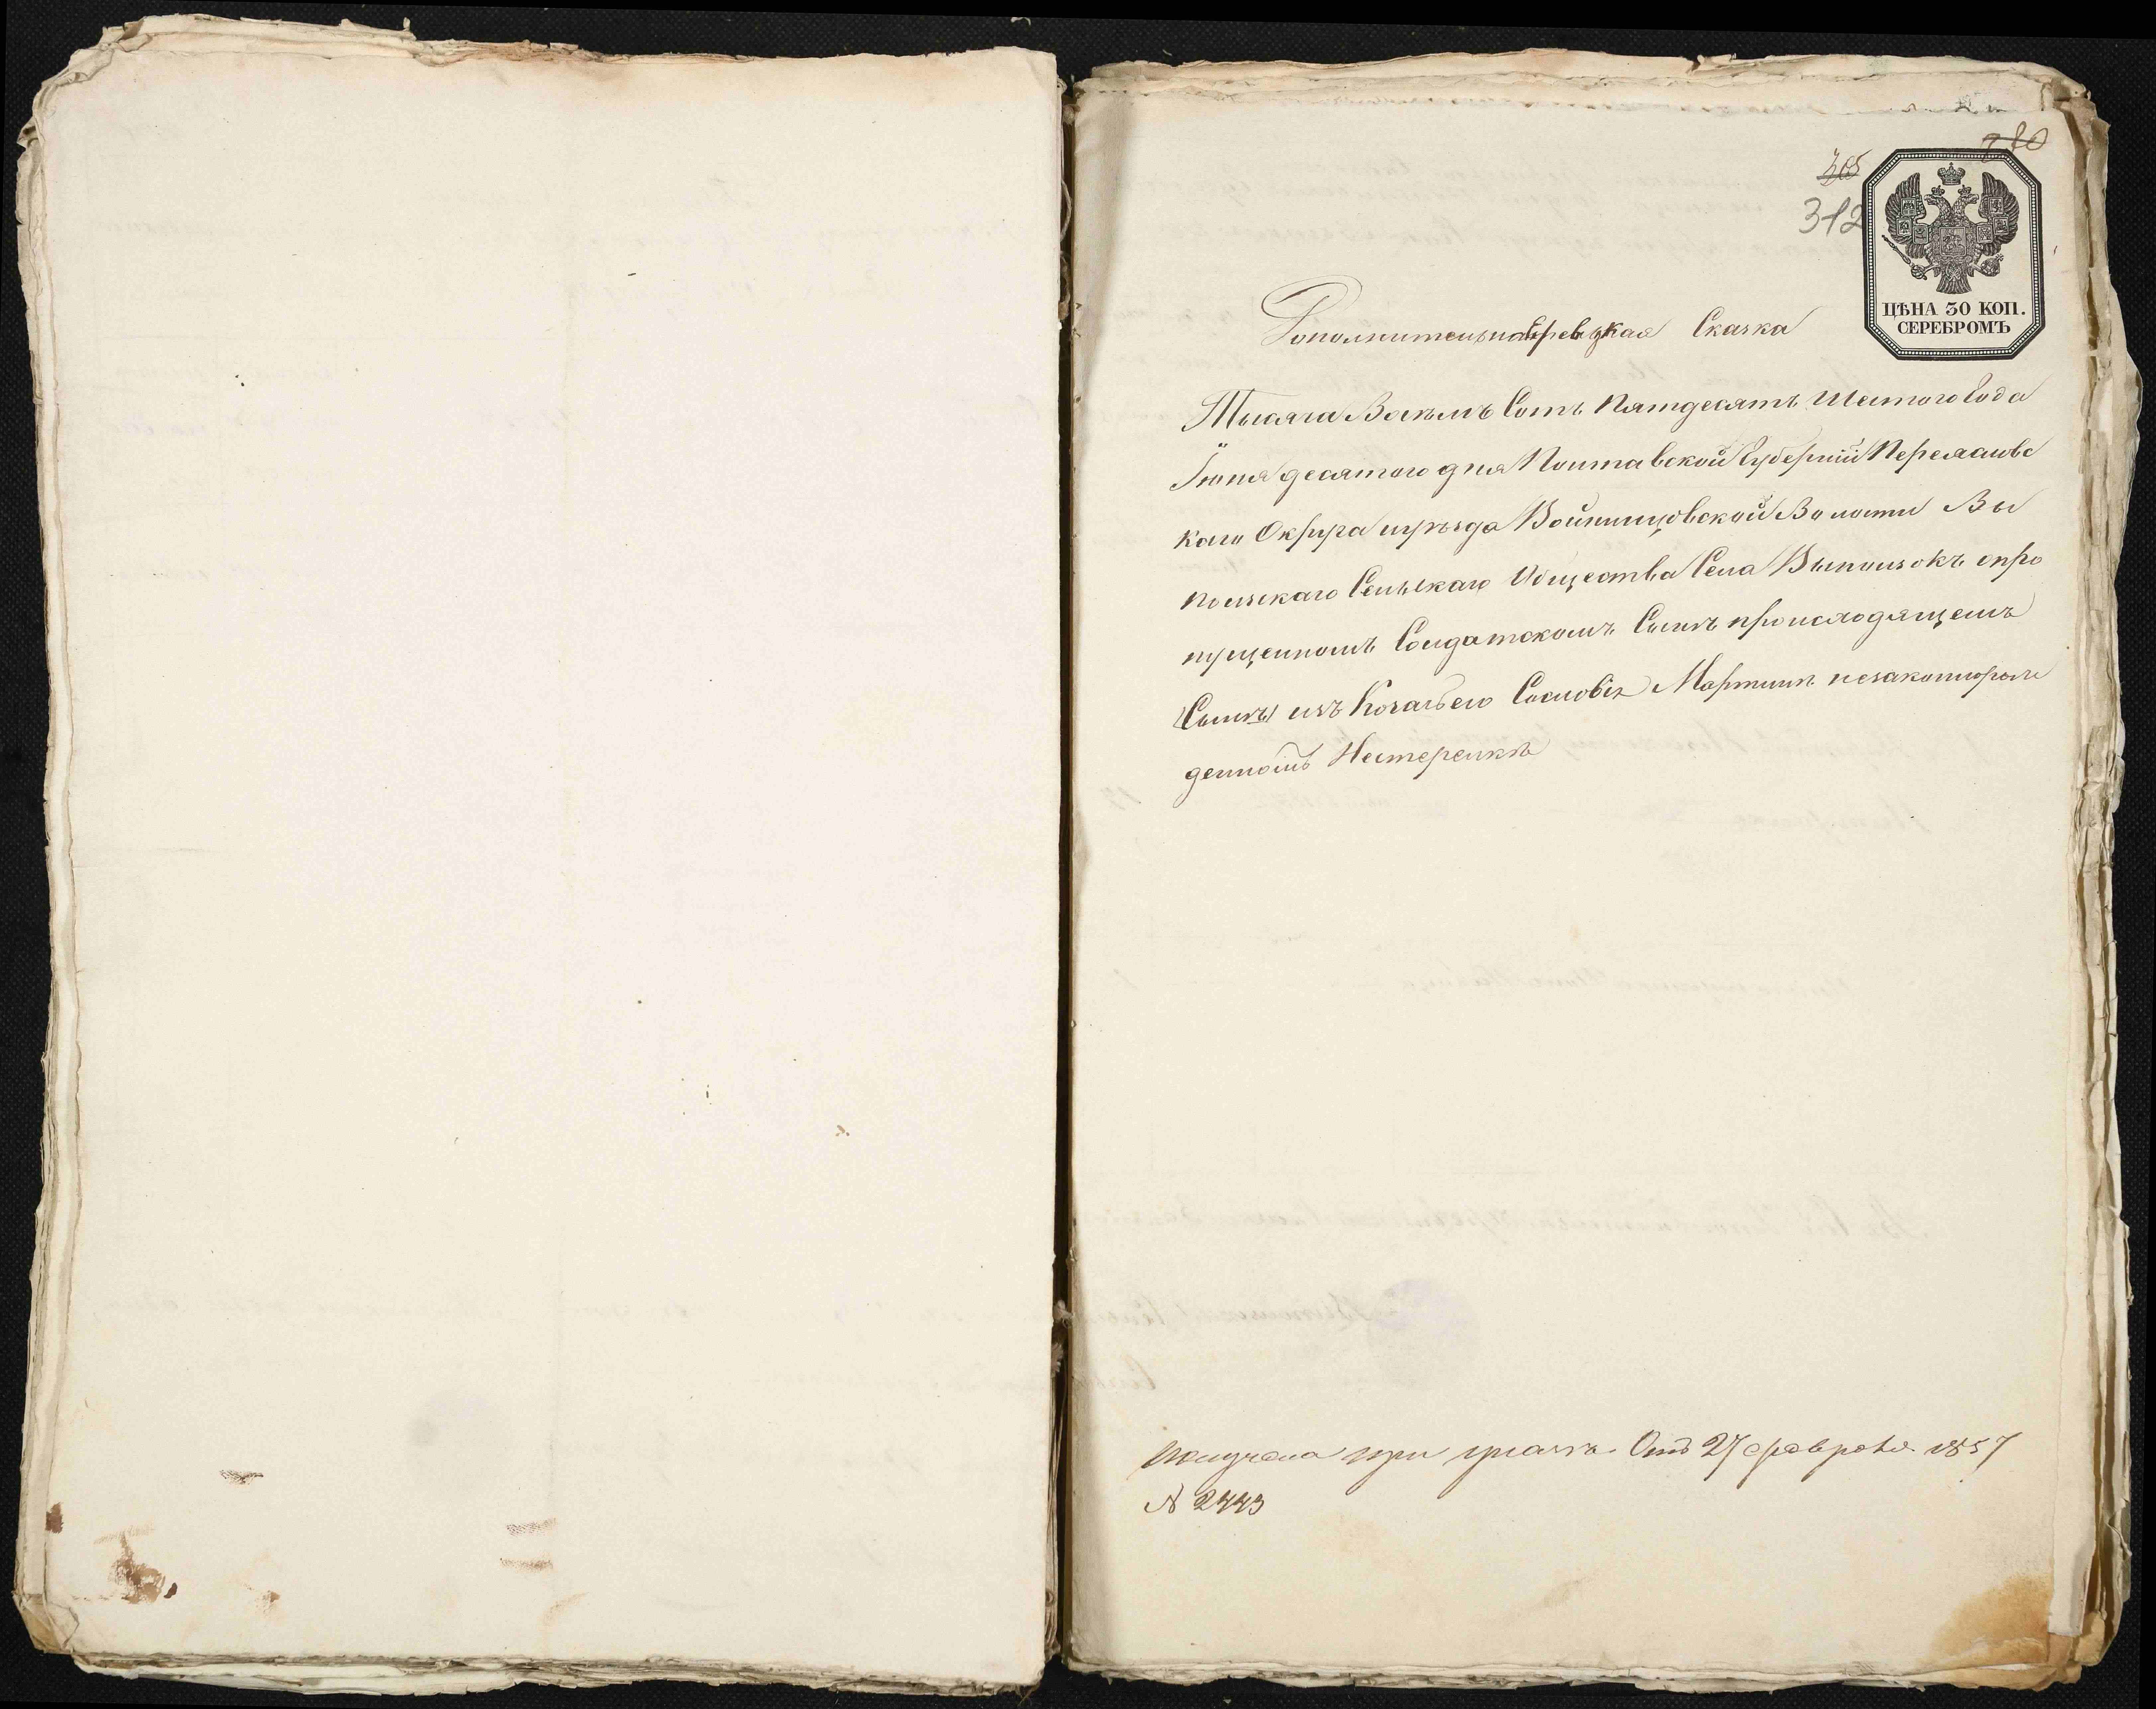 280
305
312
ЦѢНА 30 КОП.
СЕРЕБРОМЪ
Дополнительная ревизкая Сказка
Тысяча Восемъ Сотъ Пятдесятъ Шестого Года
Іюня десятого дня Полтавской Губерніи Переяславс
кого Округа иуѣзда Войтовцовской Волости Вы
ползскаго Сельскаго Общества Села Выползокъ опро
пущенномъ Солдатскомъ Сынѣ происходящемъ
изъ Козачьего Сословія Мартинѣ незаконнорож
денномъ Нестеренкѣ
Получена при указѣ Отъ 27 февраля 1857
№ 2443